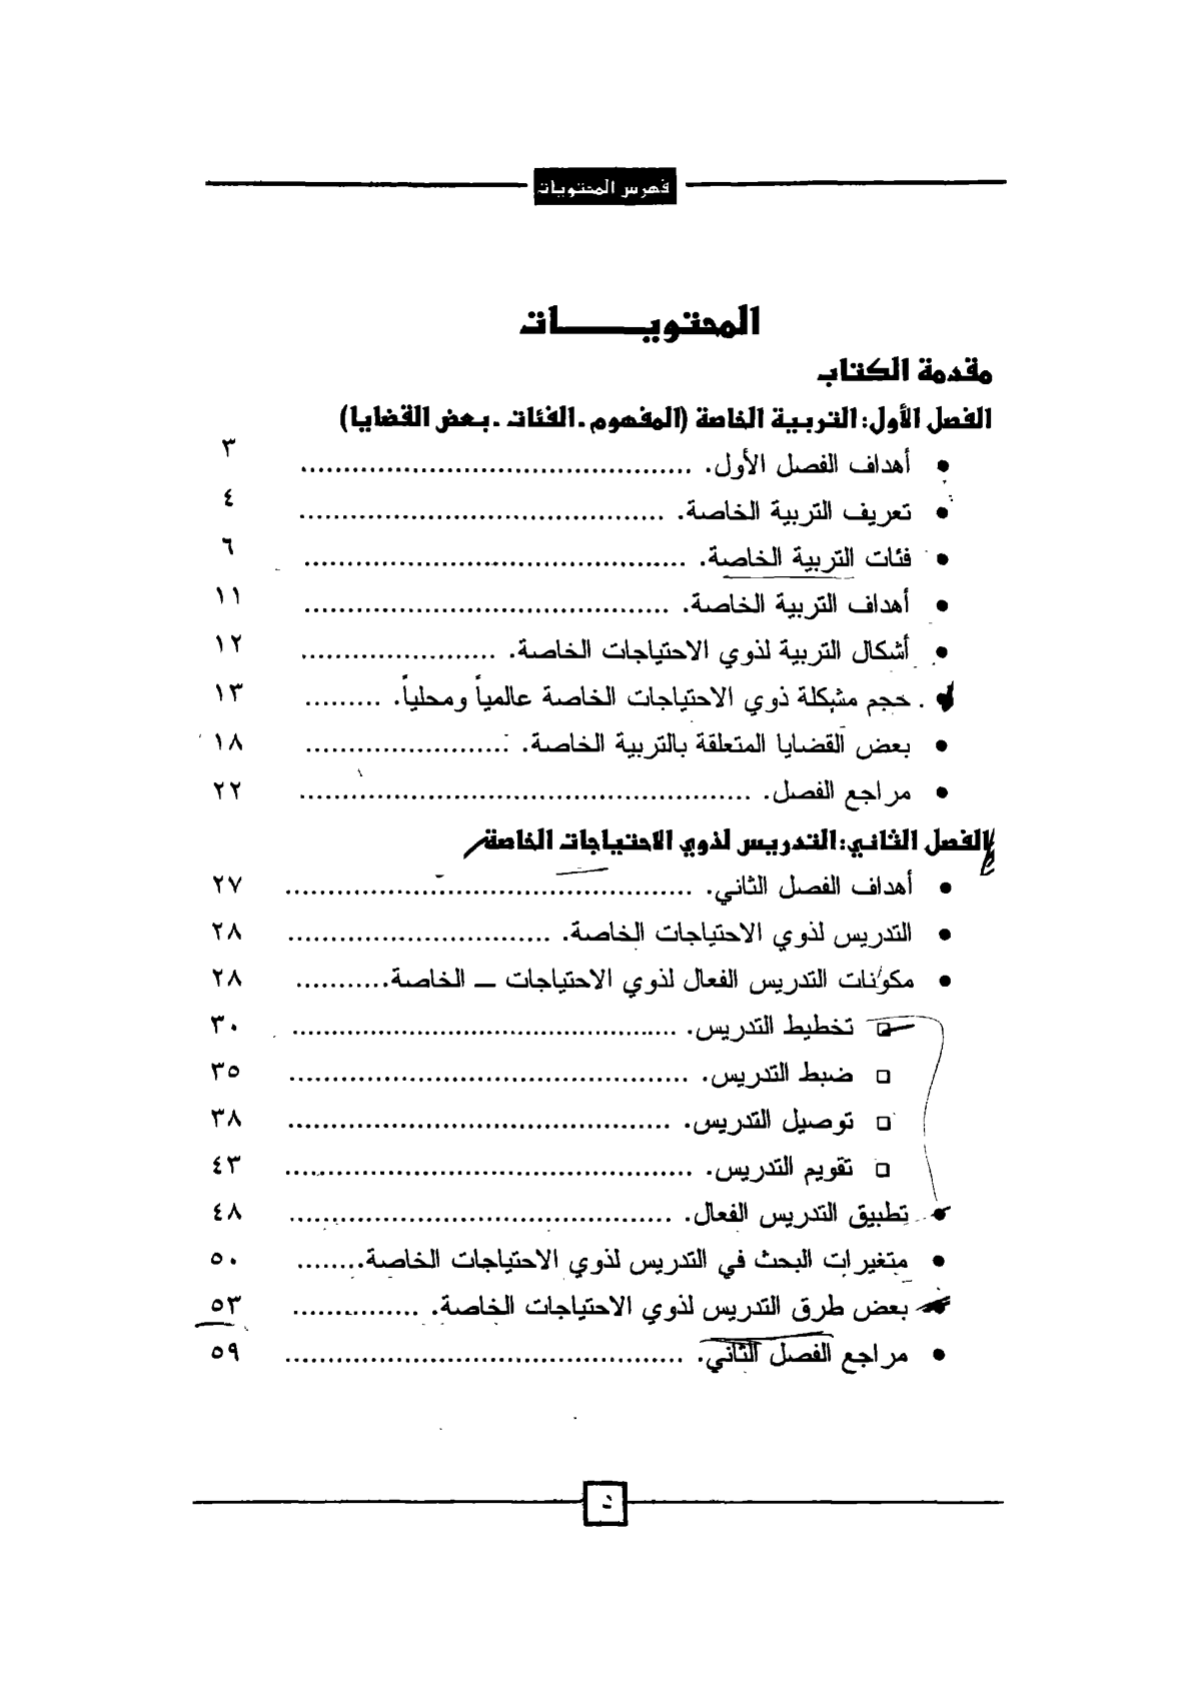 فهرس المحتويات
المحتويـــــــات
مقدمة الكتاب
الفصل الأول: التربية الخاصة (المفهوم . الفئات . بعض القضايا)
• أهداف الفصل الأول. .............................................. ٣
• تعريف التربية الخاصة. ........................................... ٤
• فئات التربية الخاصة. ............................................. ٦
• أهداف التربية الخاصة. ........................................... ١١
• أشكال التربية لذوي الاحتياجات الخاصة. ....................... ١٢
• حجم مشكلة ذوي الاحتياجات الخاصة عالمياً ومحلياً. ......... ١٣
• بعض القضايا المتعلقة بالتربية الخاصة. ........................ ١٨
• مراجع الفصل. ..................................................... ٢٢
الفصل الثاني: التدريس لذوي الاحتياجات الخاصة
• أهداف الفصل الثاني. ................................................ ٢٧
• التدريس لذوي الاحتياجات الخاصة. ............................... ٢٨
• مكونات التدريس الفعال لذوي الاحتياجات – الخاصة........... ٢٨
□ تخطيط التدريس. ............................................. ٣٠
□ ضبط التدريس. ............................................... ٣٥
□ توصيل التدريس. ............................................. ٣٨
□ تقويم التدريس. ................................................ ٤٣
• تطبيق التدريس الفعال. ............................................. ٤٨
• متغيرات البحث في التدريس لذوي الاحتياجات الخاصة........ ٥٠
• بعض طرق التدريس لذوي الاحتياجات الخاصة. ............... ٥٣
• مراجع الفصل الثاني. ............................................... ٥٩